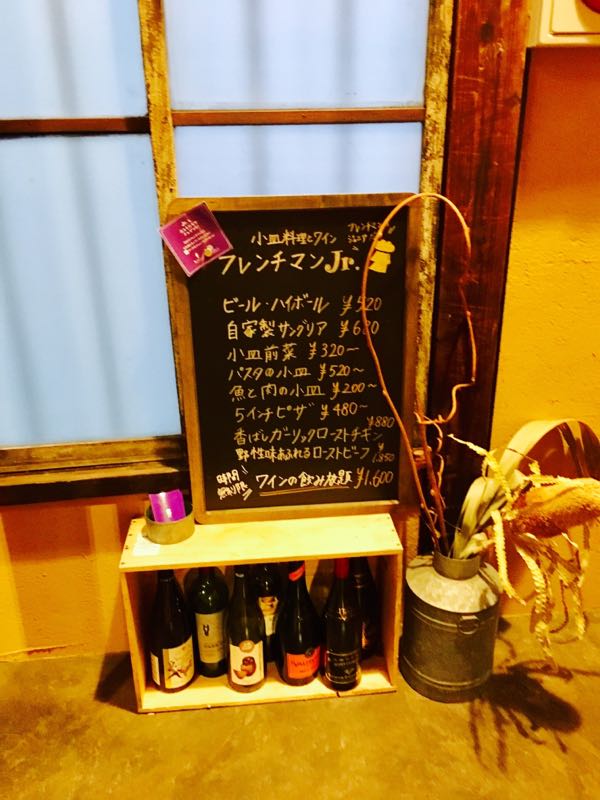 小皿料理とワイン
フレンチマン Jr.
ビール・ハイボール ¥520
自家製サングリア ¥680
小皿前菜 ¥320〜
パスタの小皿 ¥520〜
魚と肉の小皿 ¥200〜
5インチピザ ¥480〜
香ばしガーリックローストチキン ¥880
野性味あふれるローストビーフ ¥850
時間無制限 ワインの飲み放題 ¥1,600